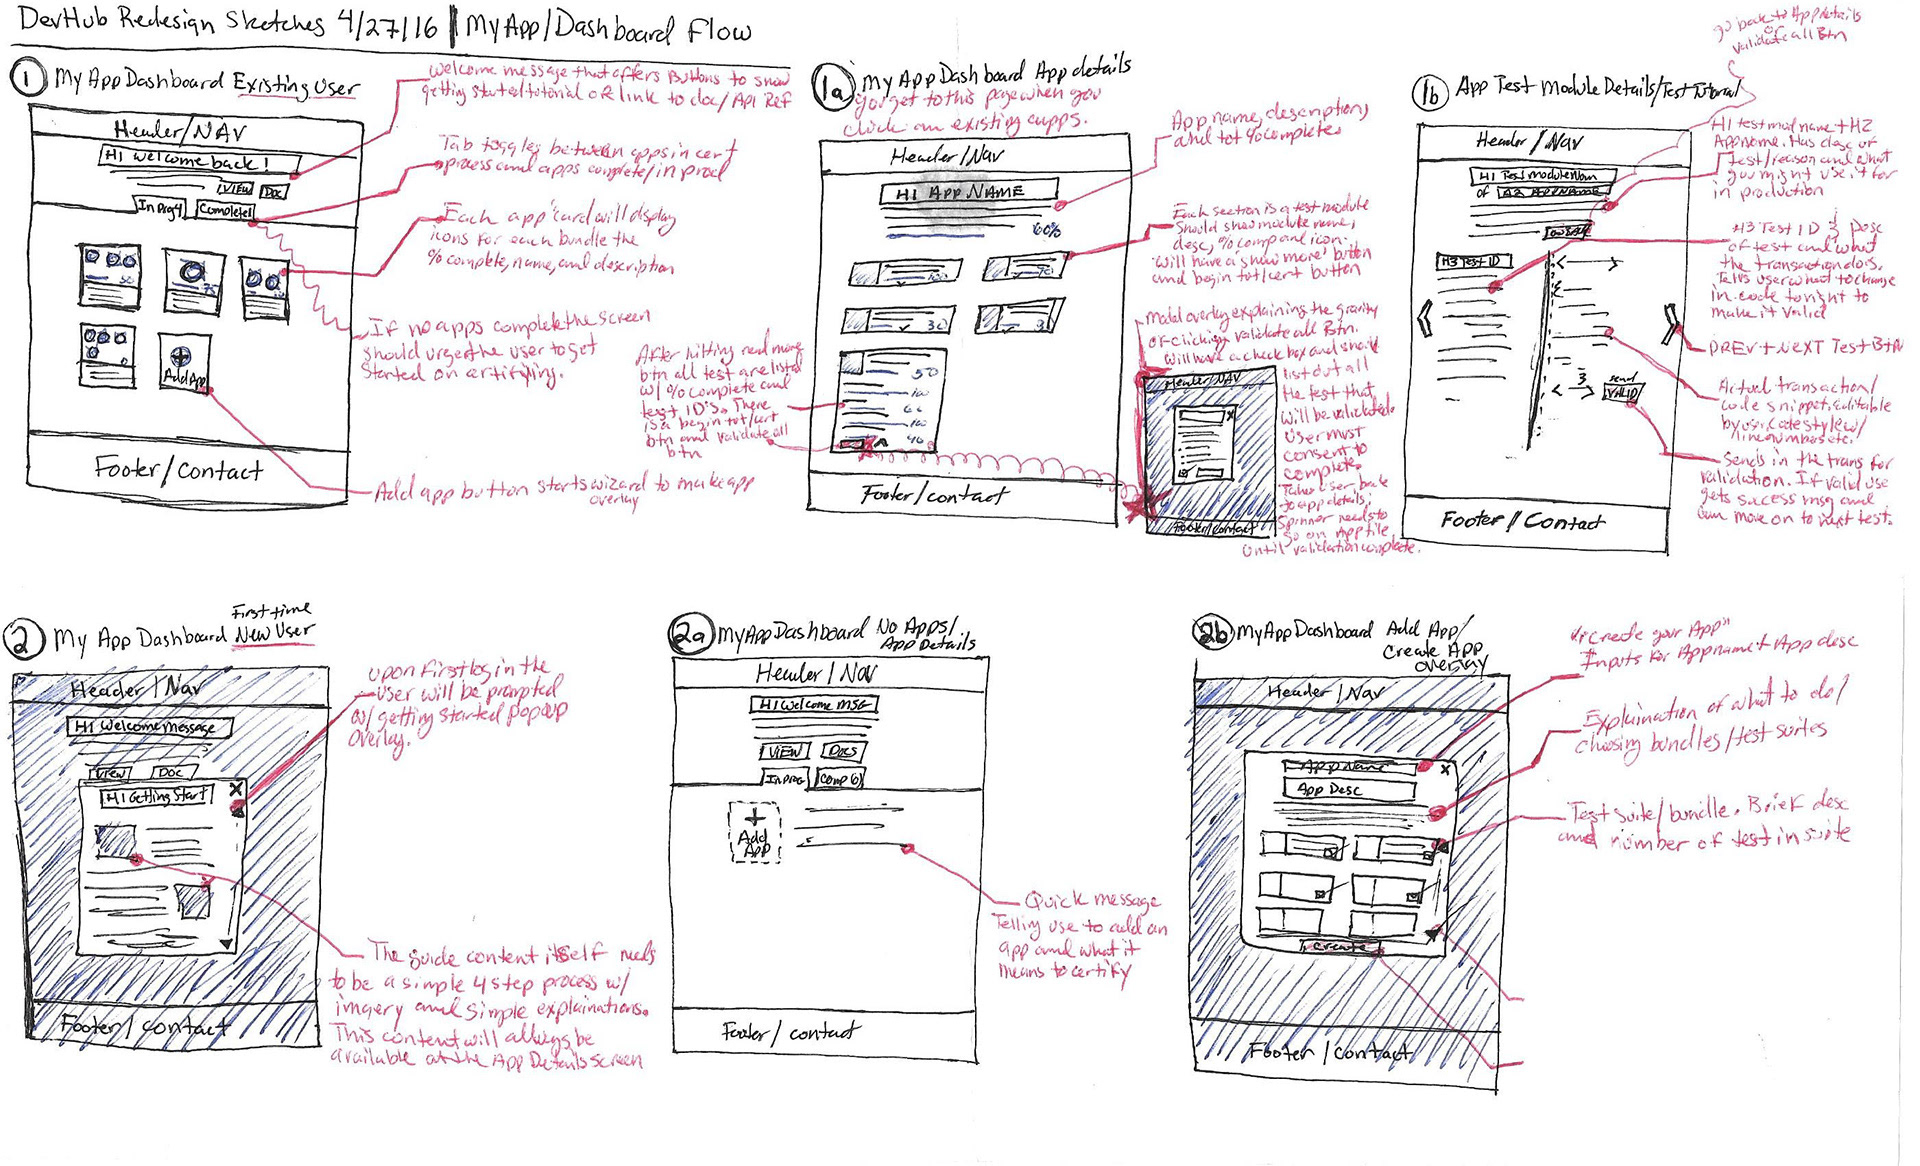 DevHub Redesign Sketches 4/27/16 | My App/Dashboard Flow
1 My App Dashboard Existing User
Welcome message that offers Buttons to show
getting started tutorial OR link to doc/API Ref
Header/NAV
H1 Welcome back!
VIEW DOC
In prog 4 Complete 1
Tab toggles between apps in cert
process and apps complete/in prod
Each app card will display
icons for each bundle the
% complete, name, and description
50
75
+
Add App
If no apps complete the screen
should urge the user to get
started on certifying.
Add app button starts wizard to make app
overlay
Footer/Contact
1a My App Dashboard App details
You get to this page when you
click on existing apps.
Header/Nav
H1 App NAME
60%
App name, description,
and tot % complete
Each section is a test module
Should show module name,
desc, % comp and icon.
will have a show more button
and begin tot/cert button
100
70
30
After hitting read more
btn all test are listed
w/ % complete and
test ID's. There
is a begin tot/cert
btn and validate all
btn
50
100
60
100
40
Footer/contact
Modal overlay explaining the gravity
of clicking validate all Btn.
will have a check box and should
list out all
the test that
will be validated.
User must
consent to
complete.
Takes user back
to app details.
Spinner needs to
go on App tile
until validation complete.
Header/NAV
x
Footer/contact
1b App Test Module Details/Test Tutorial
go back to App details
or validate all Btn
Header/Nav
H1 Test module Nam
of H2 APP NAME
H1 test mod name + H2
App name. Has desc of
test/reason and what
you might use it for
in production
H3 Test ID
H3 Test ID & Desc
of test and what
the transaction does.
Tells user what to change
in code to right to
make it valid
PREV + NEXT Test Btn
Actual transaction/
code snippet, editable
by user, code style w/
line numbers etc.
send
VALID
Sends in the trans for
validation. If valid use
gets success msg and
can move on to next test.
Footer/Contact
2 My App Dashboard First time
New User
Header/Nav
H1 Welcome message
View DOC
H1 Getting Start
X
Upon first log in the
user will be prompted
w/ getting started popup
overlay.
The guide content itself needs
to be a simple 4 step process w/
imagery and simple explainations.
This content will always be
available at the App Details screen
Footer/contact
2a My App Dashboard No Apps/
App Details
Header/Nav
H1 Welcome MSG
VIEW DOCS
In PROG Comp 0
+
Add
App
Quick message
Telling use to add an
app and what it
means to certify
Footer/contact
2b My App Dashboard Add App/
Create App
overlay
Header/Nav
App Name
x
App Desc
Create
"Create your App"
Inputs for App name + App desc
Explaination of what to do/
choosing bundles/test suites
Test suite/bundle. Brief desc
and number of test in suite
Footer/contact